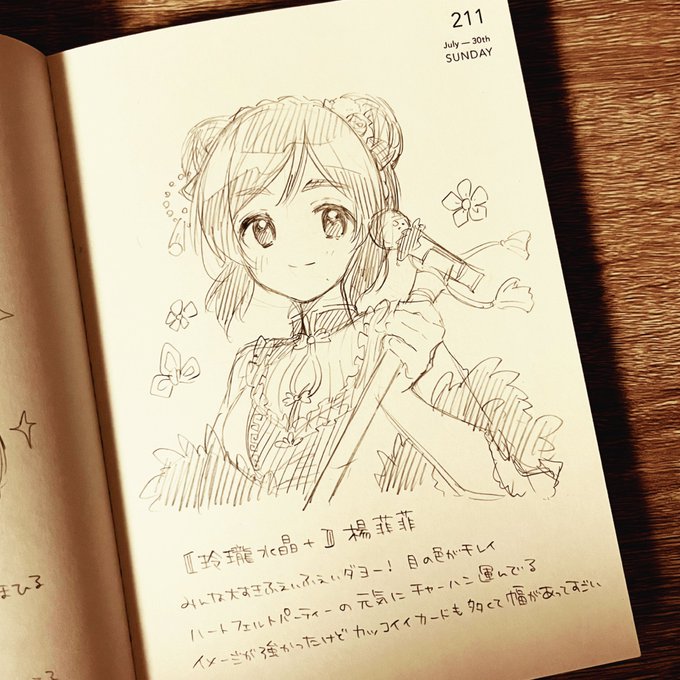 211
July — 30th
SUNDAY
【玲瓏水晶+】楊菲菲
みんな大すきふぇいふぇいダヨー! 目の色がキレイ
ハートフェルトパーティーの元気にチャーハン運んでる
イメージが強かったけどカッコイイカードも多くて幅があってすごい
まひる